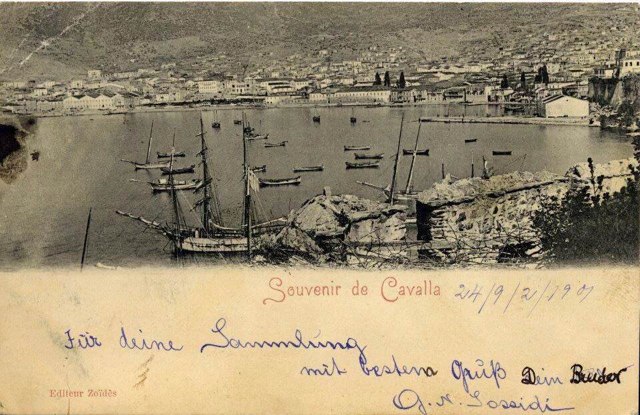 Souvenir de Cavalla 24/9/2/901
Für deine Sammlung
mit bestem Gruß Dein Bruder
G. N. Iossidi
Editeur Zoïdès